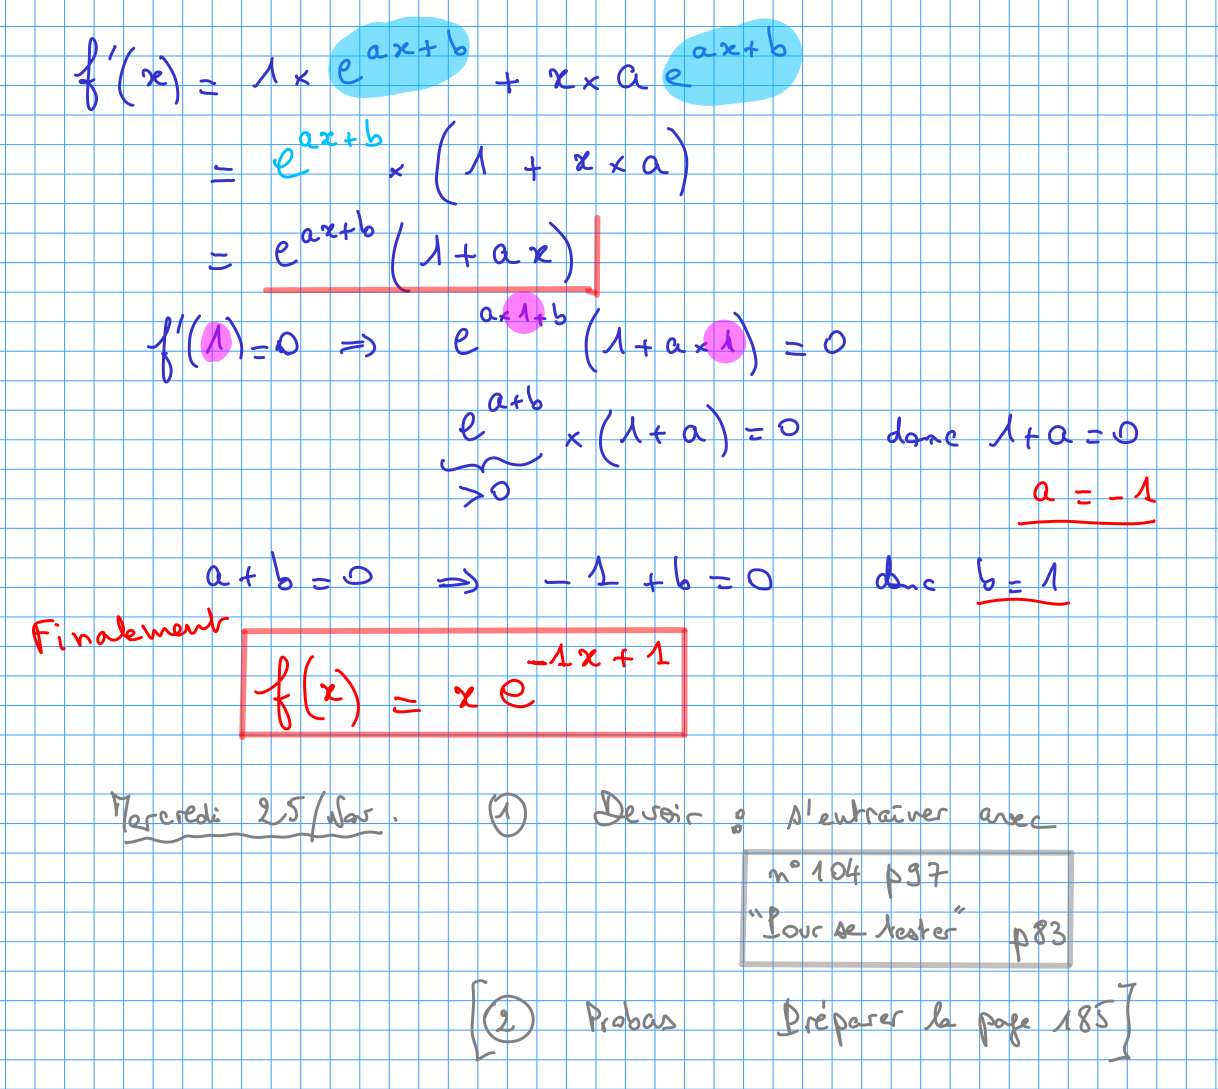 f'(x) = 1 × e^{ax+b} + x × a e^{ax+b}
= e^{ax+b} × (1 + x × a)
= e^{ax+b} (1 + ax)
f'(1) = 0 ⇒ e^{a×1+b} (1 + a × 1) = 0
e^{a+b} × (1 + a) = 0 donc 1 + a = 0
> 0 a = -1
a + b = 0 ⇒ -1 + b = 0 donc b = 1
Finalement
f(x) = x e^{-1x+1}
Mercredi 25/Nov. ① Devoir : s'entraîner avec
n° 104 p97
"Pour se tester" p83
[② Probas Préparer la page 185]